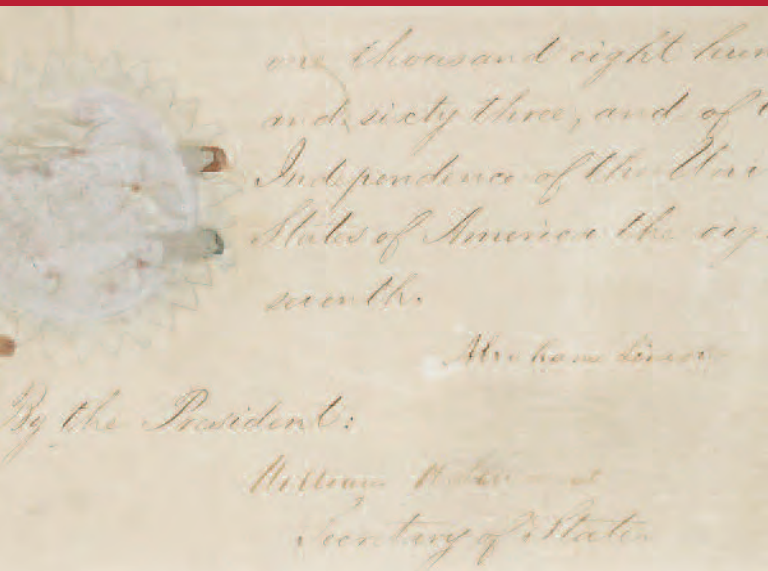 one thousand eight hun
and sixty three, and of t
Independence of the Uni
States of America the eig
seventh.
Abraham Lincoln
By the President:
William H. Seward
Secretary of State